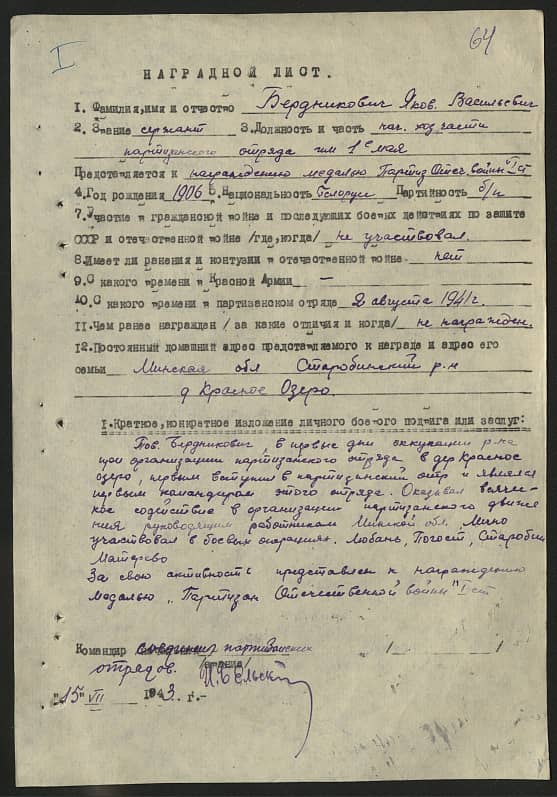 I
64
НАГРАДНОЙ ЛИСТ.
1. Фамилия,имя и отчество Бердникович Яков. Васильевич
2. Звание сержант 3.Должность и часть нач. хоз части
партизанского отряда им 1е мая
Представляется к награждению медалью Партиз Отеч. войны" I ст
4.Год рождения 1906 5.Национальность Белорус Партийность б/п
7.Участие в гражданской войне и последующих боевых действиях по защите
СССР и отечественной войне /где,когда/ не участвовал.
8.Имеет ли ранения и контузии в отечественной войне нет
9.С какого времени в Красной Армии —
10.С какого времени в партизанском отряде 2 августа 1941 г.
11.Чем ранее награжден / за какие отличия и когда/ не награжден.
12.Постоянный домашний адрес представляемого к награде и адрес его
семьи Минская обл Старобинский р-н
д Красное Озеро.
1.Краткое,конкретное изложение личного боевого подвига или заслуг:
Тов. Бердникович, в первые дни оккупации р-на
при организации партизанского отряда в дер Красное
озеро, первым вступил в партизанский отр и являлся
первым командиром этого отряда. Оказывал всяче-
кое содействие в организации партизанского движе
ния руководящим работникам Минской обл.
участвовал в боевых операциях. Любань, Погост, Старобин
За свою активность представлен к награждению
медалью „Партизан Отечественной войны" I ст
Командир партизанских
отрядов. /звание/
"15" VII 1943 г.-